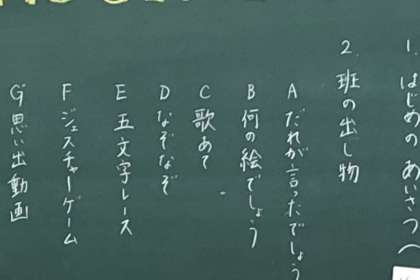 1. はじめのあいさつ
2. 班の出し物
A だれが言ったでしょう
B 何の絵でしょう
C 歌あて
D なぞなぞ
E 五文字レース
F ジェスチャーゲーム
G 思い出動画